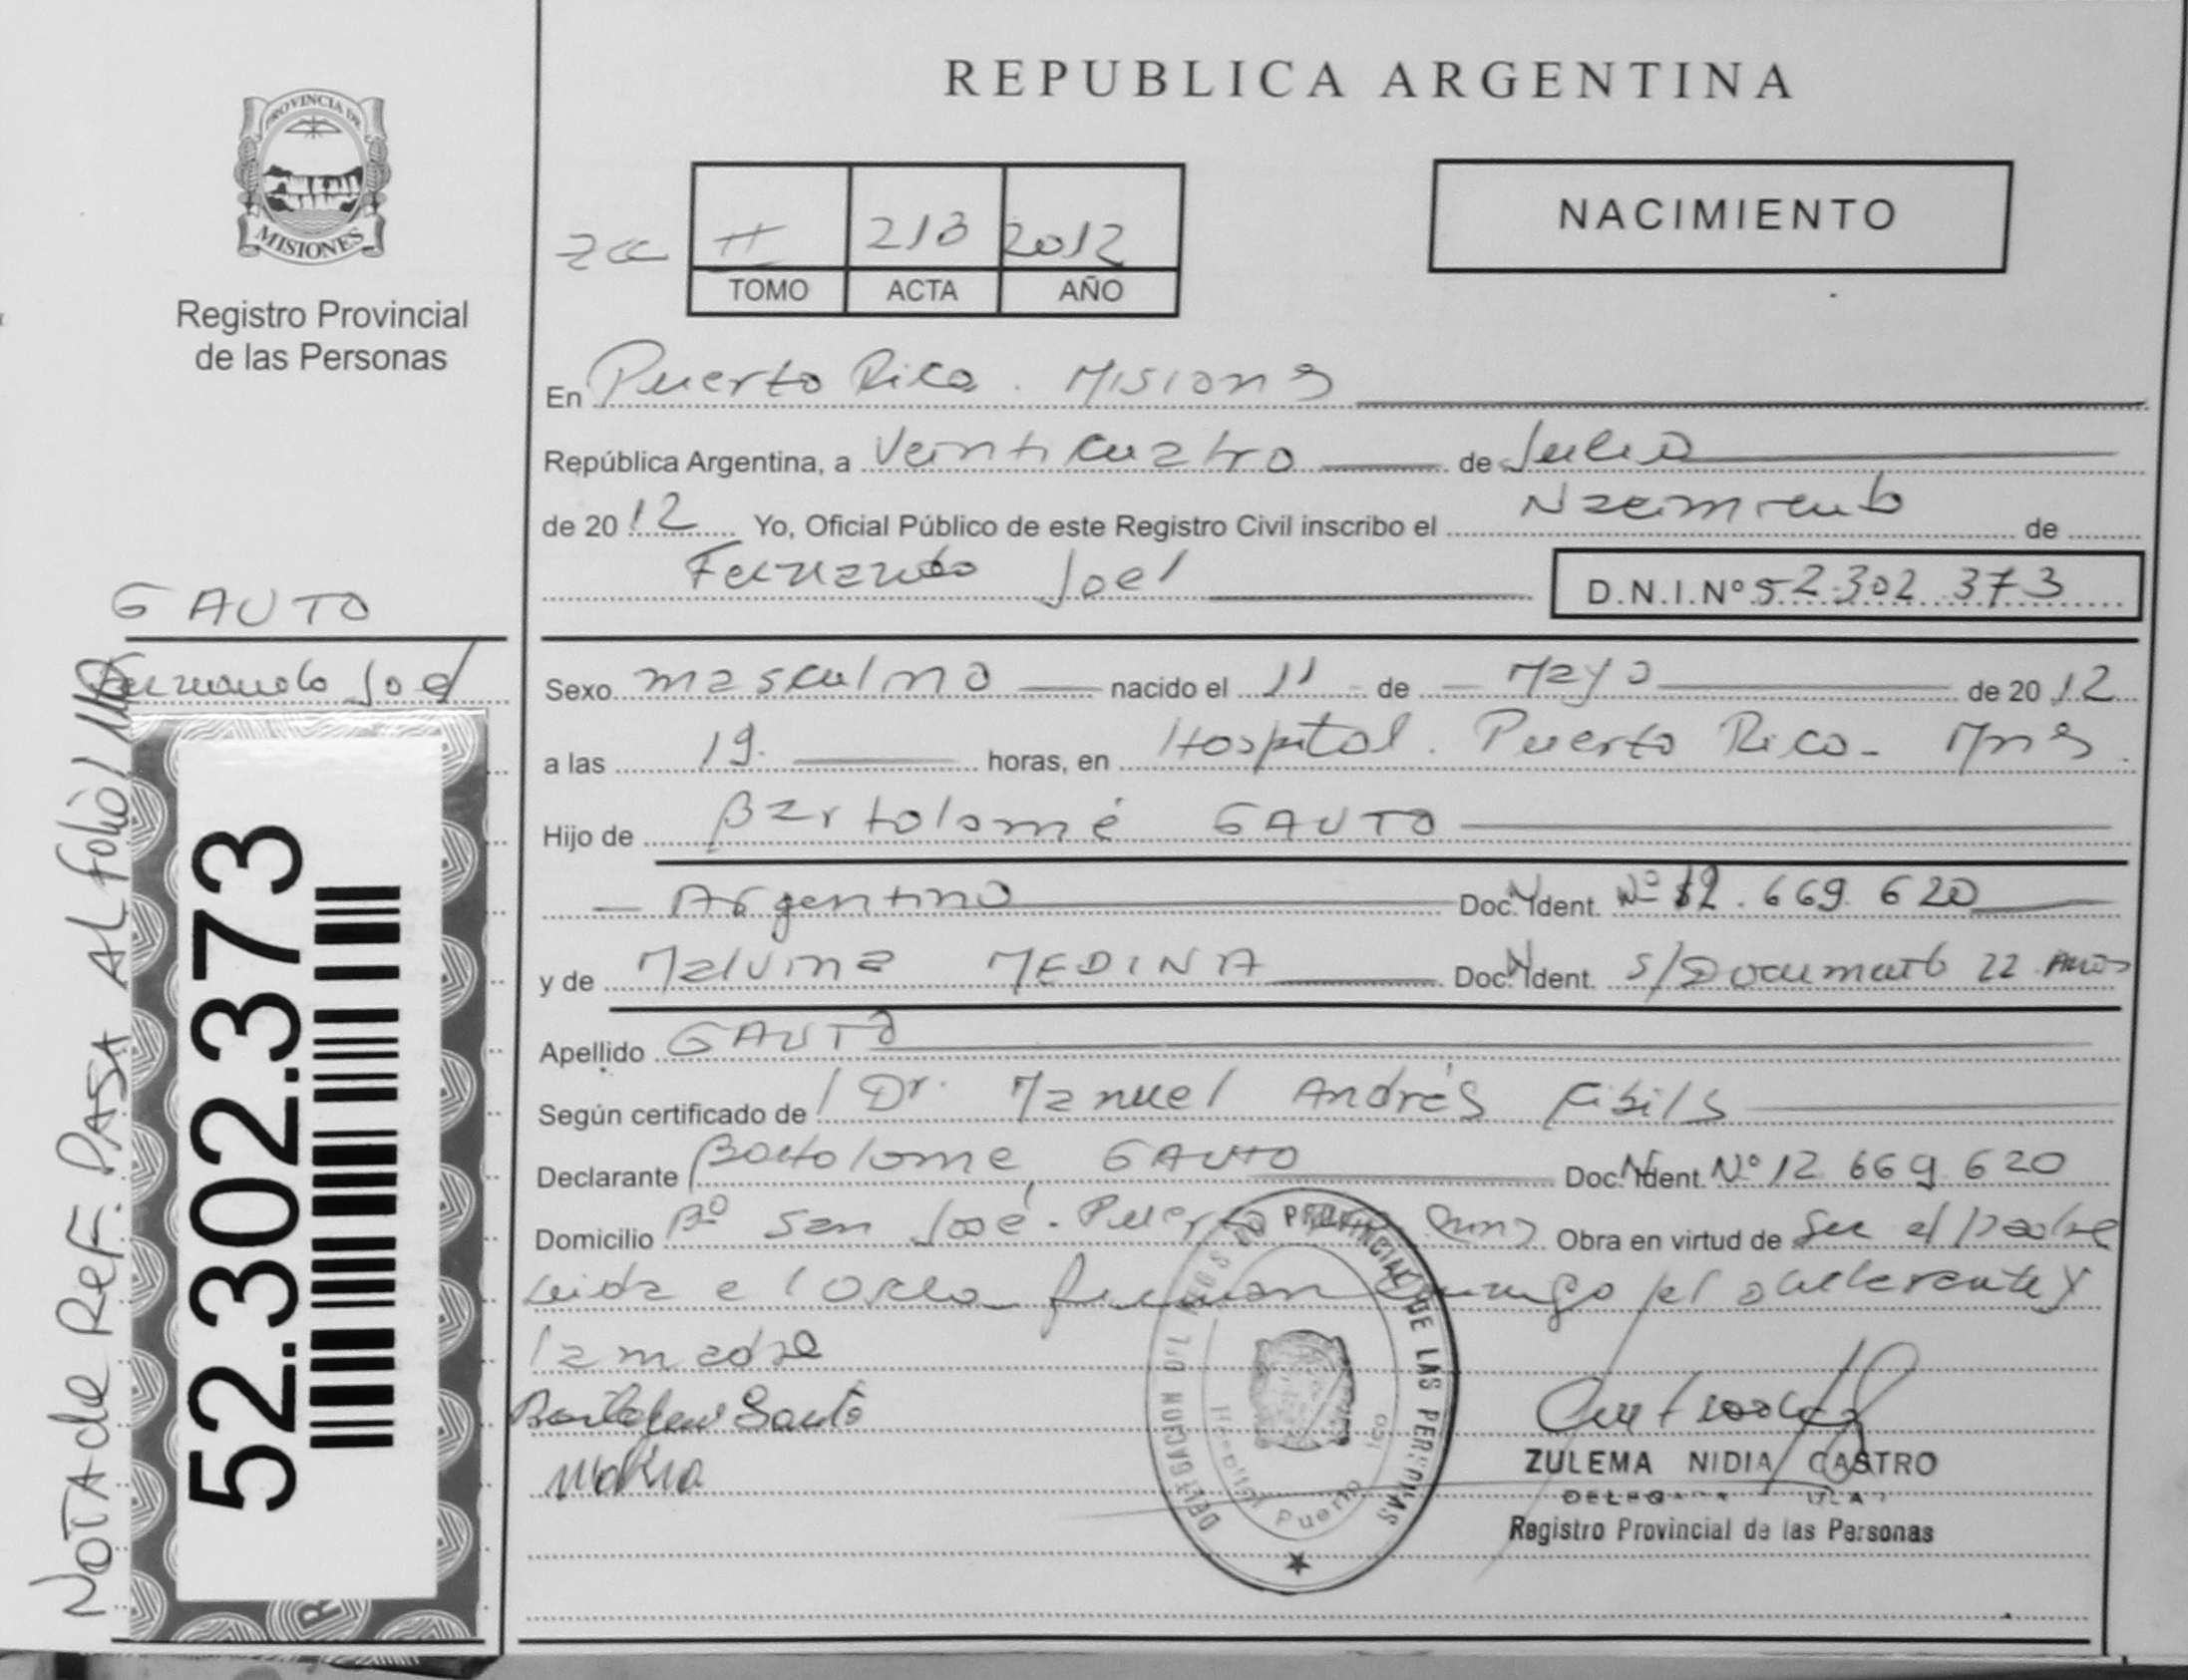 PROVINCIA DE
MISIONES
Registro Provincial
de las Personas
GAUTO
Fernando Joel
NOTA de REF. PASA AL folio
52.302.373
REPUBLICA ARGENTINA
NACIMIENTO
II 213 2012
TOMO ACTA AÑO
En Puerto Rico. Misiones
República Argentina, a Veinticuatro de Julio
de 2012 Yo, Oficial Público de este Registro Civil inscribo el Nacimiento de
Fernando Joel D.N.I.Nº 52.302.373
Sexo masculino nacido el 11 de Mayo de 2012
a las 19. horas, en Hospital. Puerto Rico - Mnes.
Hijo de Bartolomé GAUTO
Argentino Doc. Ident. Nº 12.669.620
y de Malvina MEDINA Doc. Ident. S/Documento 22 Años
Apellido GAUTO
Según certificado de Dr. Manuel Andrés Fibils
Declarante Bartolomé GAUTO Doc. Ident. Nº 12 669 620
Domicilio Bº San José - Puerto Obra en virtud de ser el padre
Leida el acta firman conmigo el declarante y
la madre
Bartolome Gauto
ZULEMA NIDIA CASTRO
Registro Provincial de las Personas
PROVINCIAL DE LAS PERSONAS
Hospital Puerto